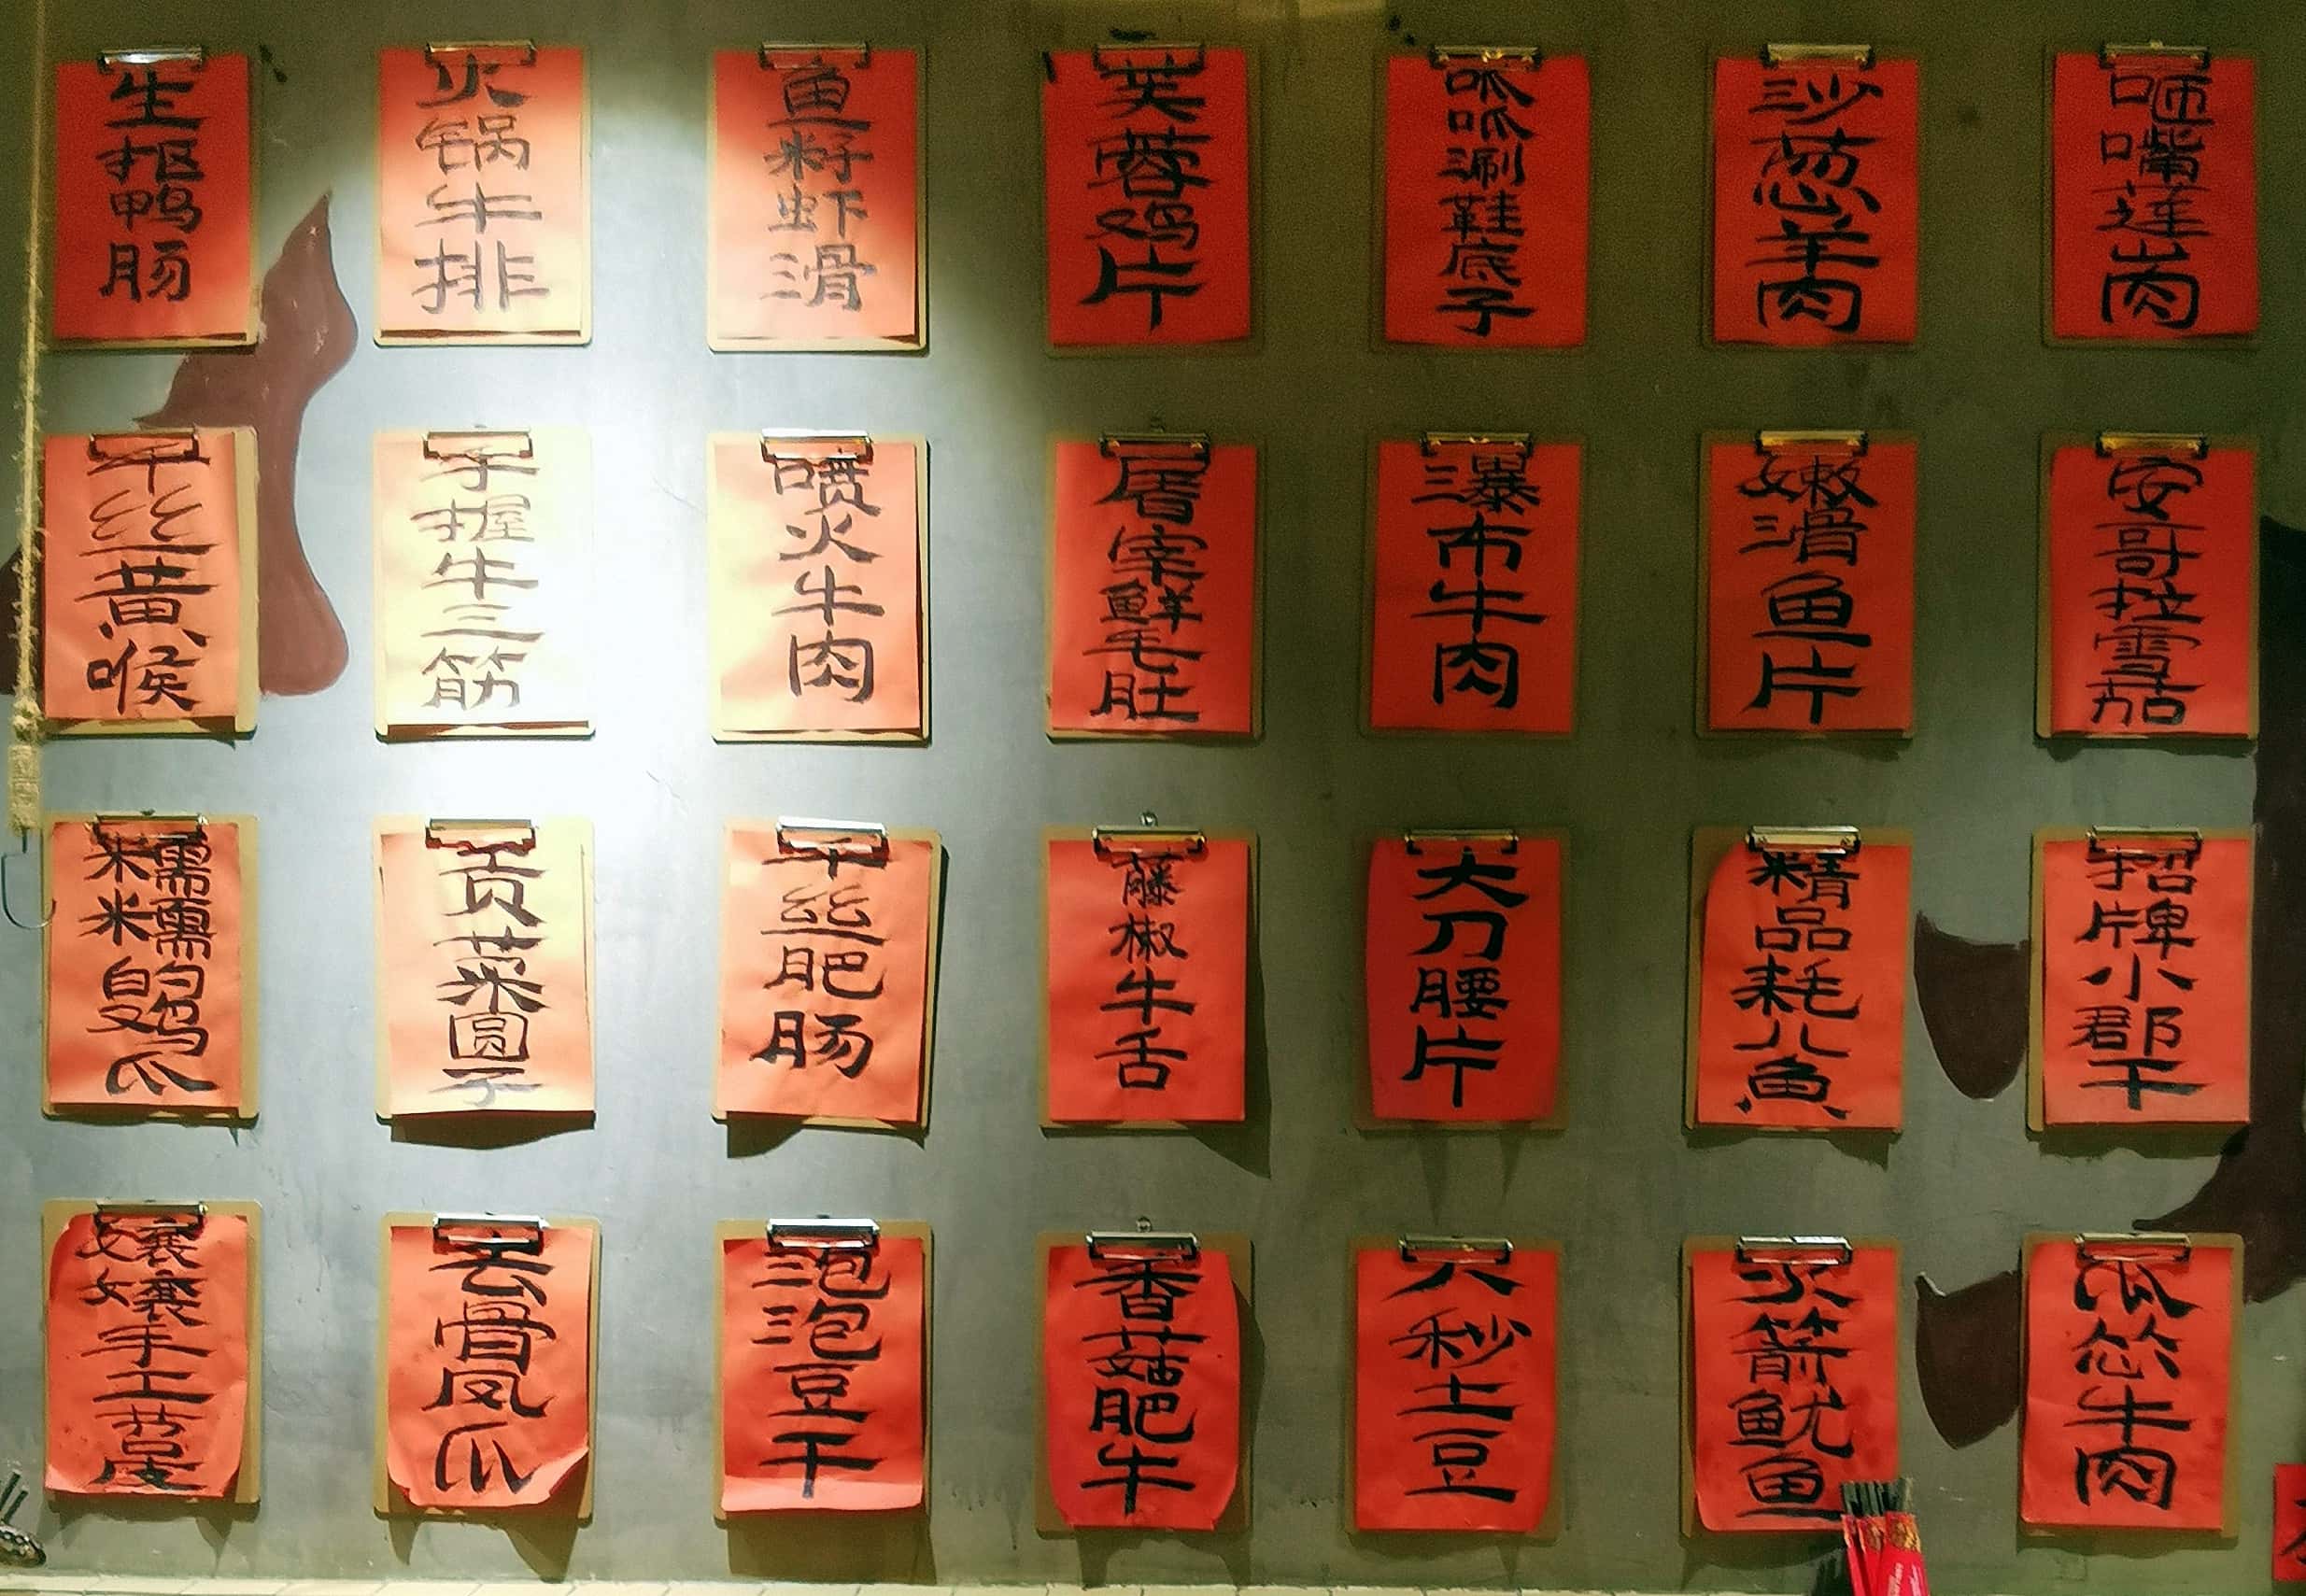 生抠鸭肠
火锅牛排
鱼籽虾滑
芙蓉鸡片
呱呱涮鞋底子
沙葱羊肉
咂嘴莲山肉
千丝黄喉
手握牛三筋
喷火牛肉
屠宰鲜毛肚
瀑布牛肉
嫩滑鱼片
安哥拉雪茄
糯糯的鸡爪
贡菜圆子
千丝肥肠
藤椒牛舌
大刀腰片
精品耗儿鱼
招牌小郡干
孃孃手工苕皮
去骨凤爪
泡泡豆干
香菇肥牛
八秒土豆
火箭鱿鱼
瓜怂牛肉